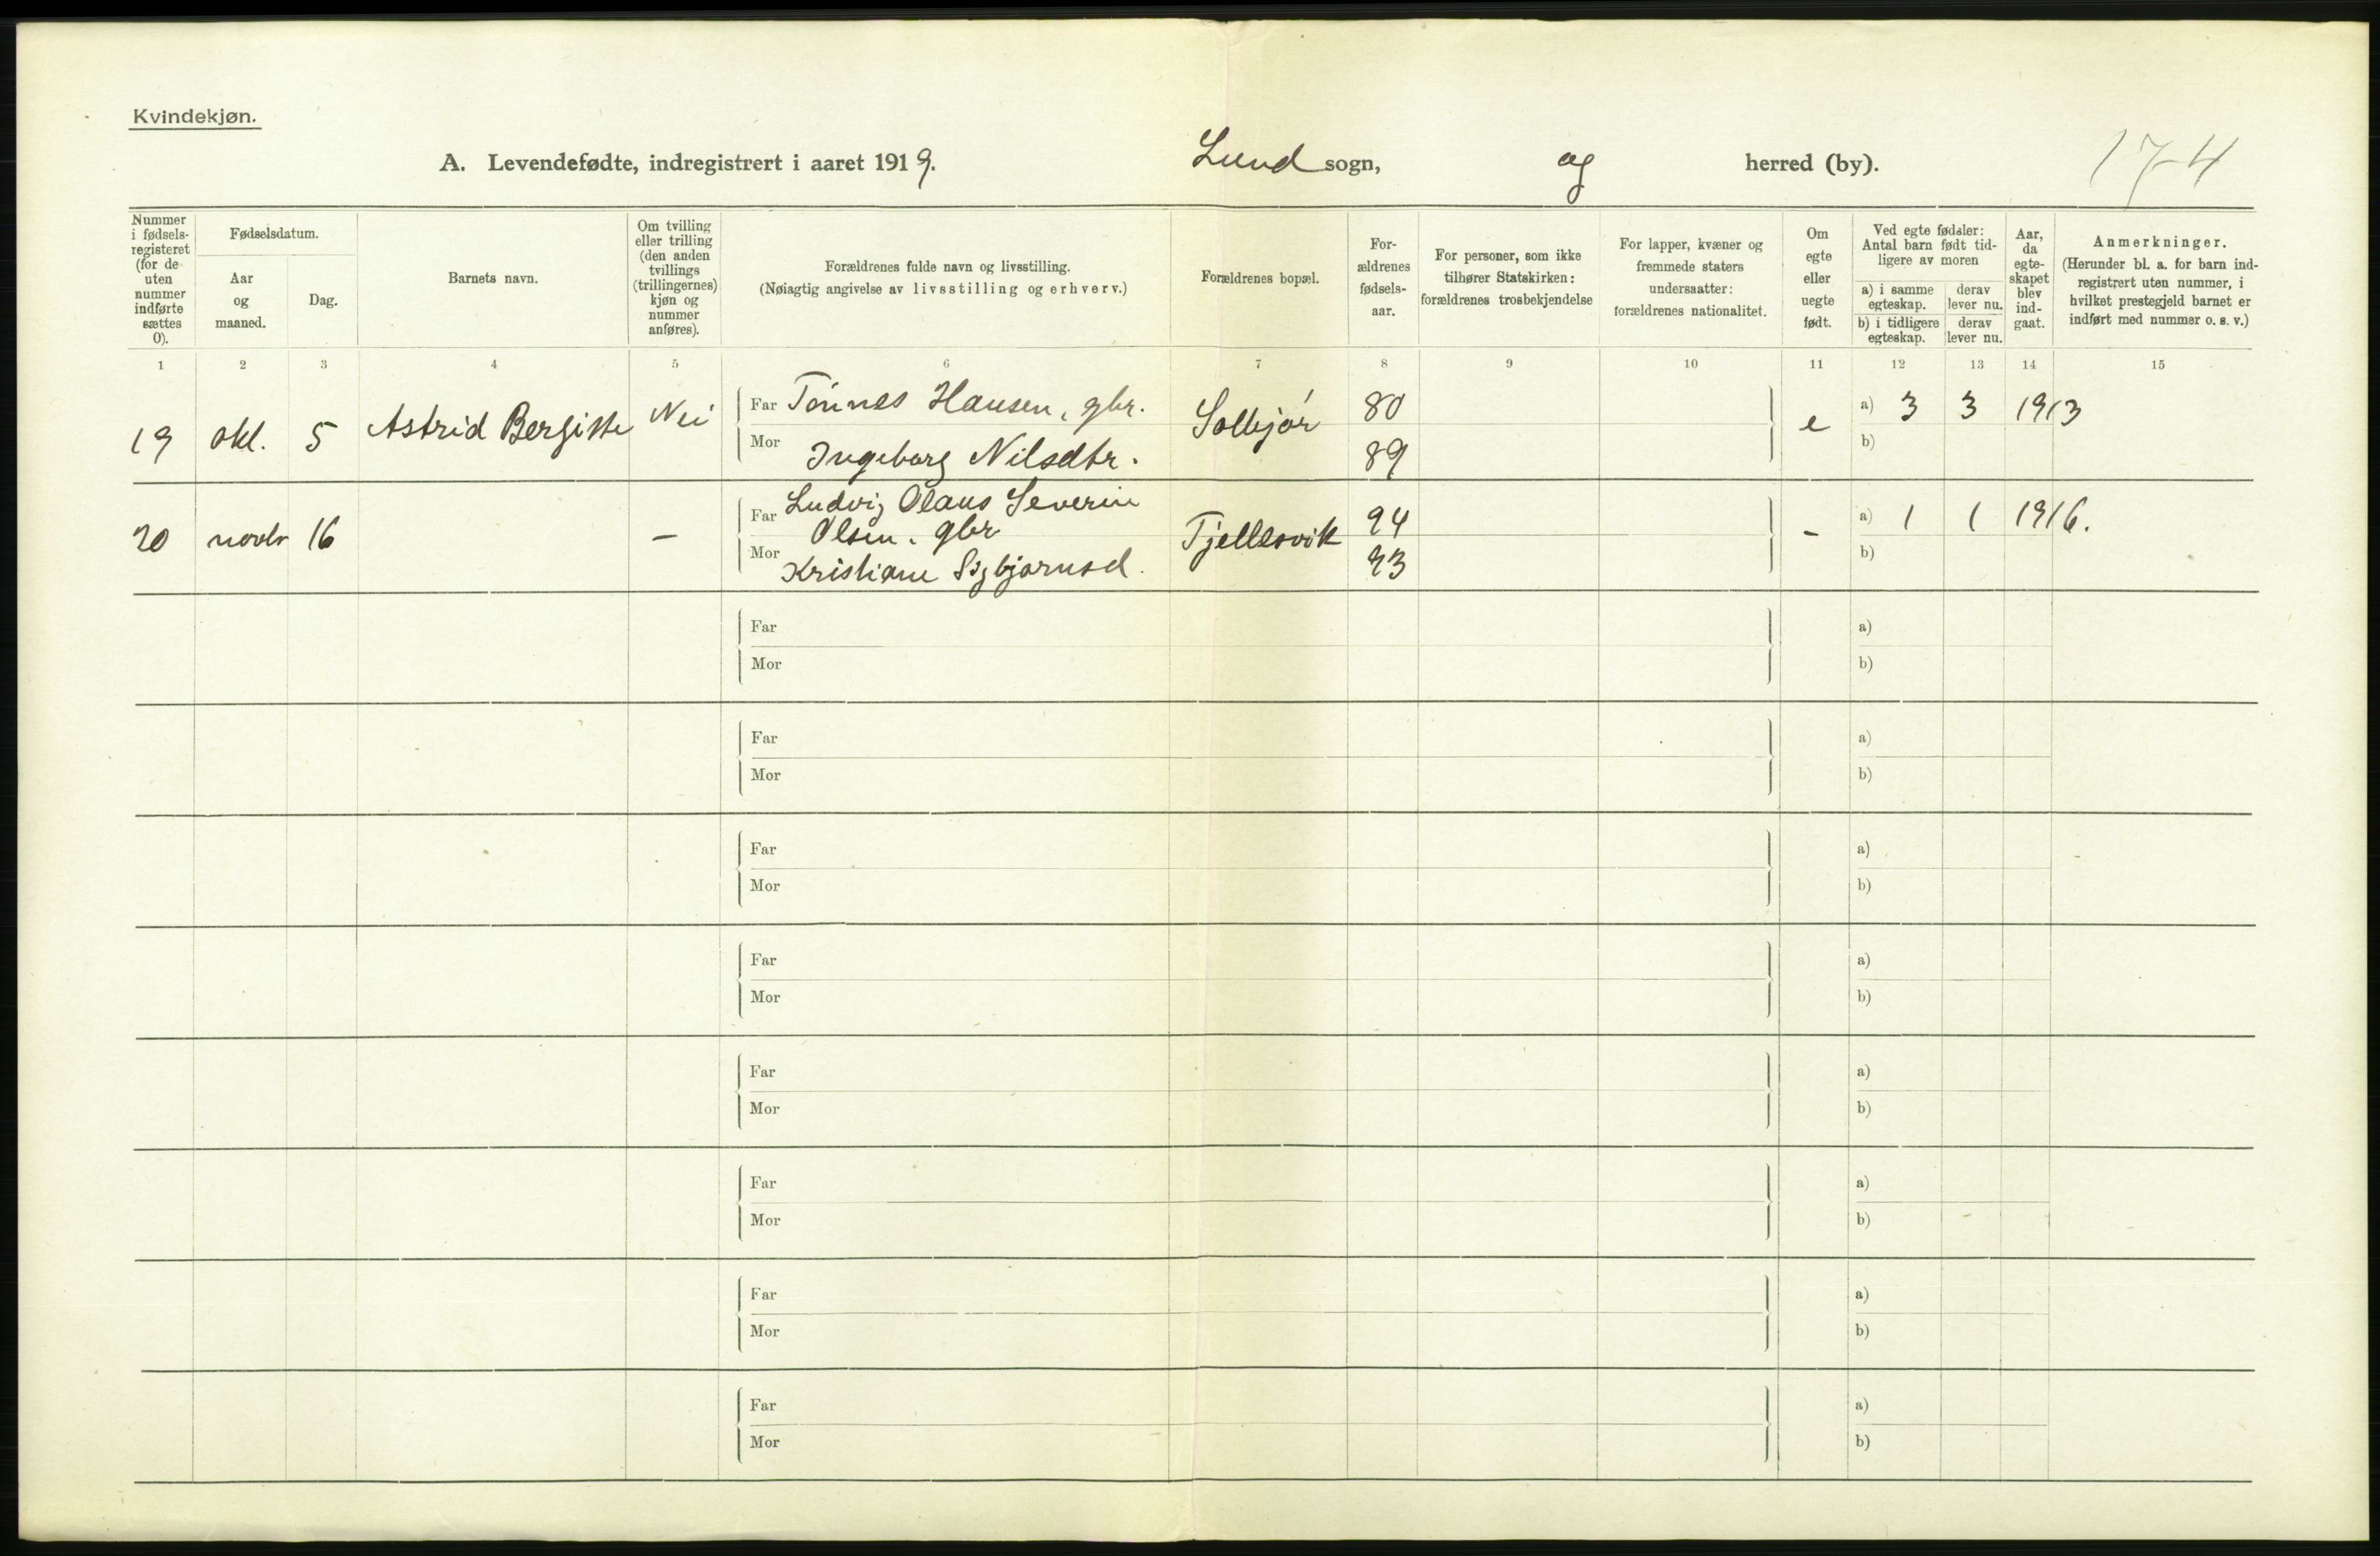 Kvindekjøn.
A. Levendefødte, indregistrert i aaret 1919. Lund sogn, og herred (by). 174
Nummer i fødsels-registeret (for de uten nummer indførte sættes 0).
Fødselsdatum.
Aar og maaned.
Dag.
Barnets navn.
Om tvilling eller trilling (den anden tvillings (trillingernes) kjøn og nummer anføres).
Forældrenes fulde navn og livsstilling.
(Nøiagtig angivelse av livsstilling og erhverv.)
Forældrenes bopæl.
For-ældrenes fødsels-aar.
For personer, som ikke tilhører Statskirken: forældrenes trosbekjendelse
For lapper, kvæner og fremmede staters undersaatter: forældrenes nationalitet.
Om egte eller uegte født.
Ved egte fødsler: Antal barn født tid-ligere av moren
a) i samme egteskap.
derav lever nu.
b) i tidligere egteskap.
derav lever nu.
Aar, da egte-skapet blev ind-gaat.
Anmerkninger.
(Herunder bl. a. for barn ind-registrert uten nummer, i hvilket prestegjeld barnet er indført med nummer o. s. v.)
1 2 3 4 5 6 7 8 9 10 11 12 13 14 15
19 okt. 5 Astrid Bergitte Nei Far Tönnes Hansen, gbr. Solbjör 80 e a) 3 3 1913
Mor Ingeborg Nilsdtr. 89 b)
20 novbr 16 – Far Ludvig Olaus Severin
Olsen, gbr Tjellesvik 94 – a) 1 1 1916.
Mor Kristiane Sigbjørnsd. 93 b)
Far a)
Mor b)
Far a)
Mor b)
Far a)
Mor b)
Far a)
Mor b)
Far a)
Mor b)
Far a)
Mor b)
Far a)
Mor b)
Far a)
Mor b)